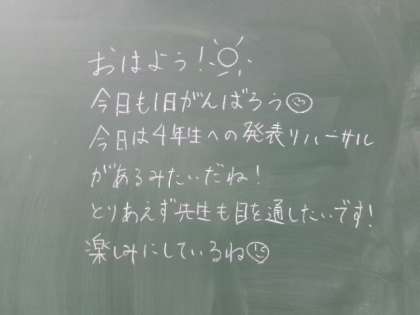 おはよう！☀
今日も1日がんばろう☺
今日は4年生への発表リハーサル
があるみたいだね！
とりあえず先生も目を通したいです！
楽しみにしているね☺